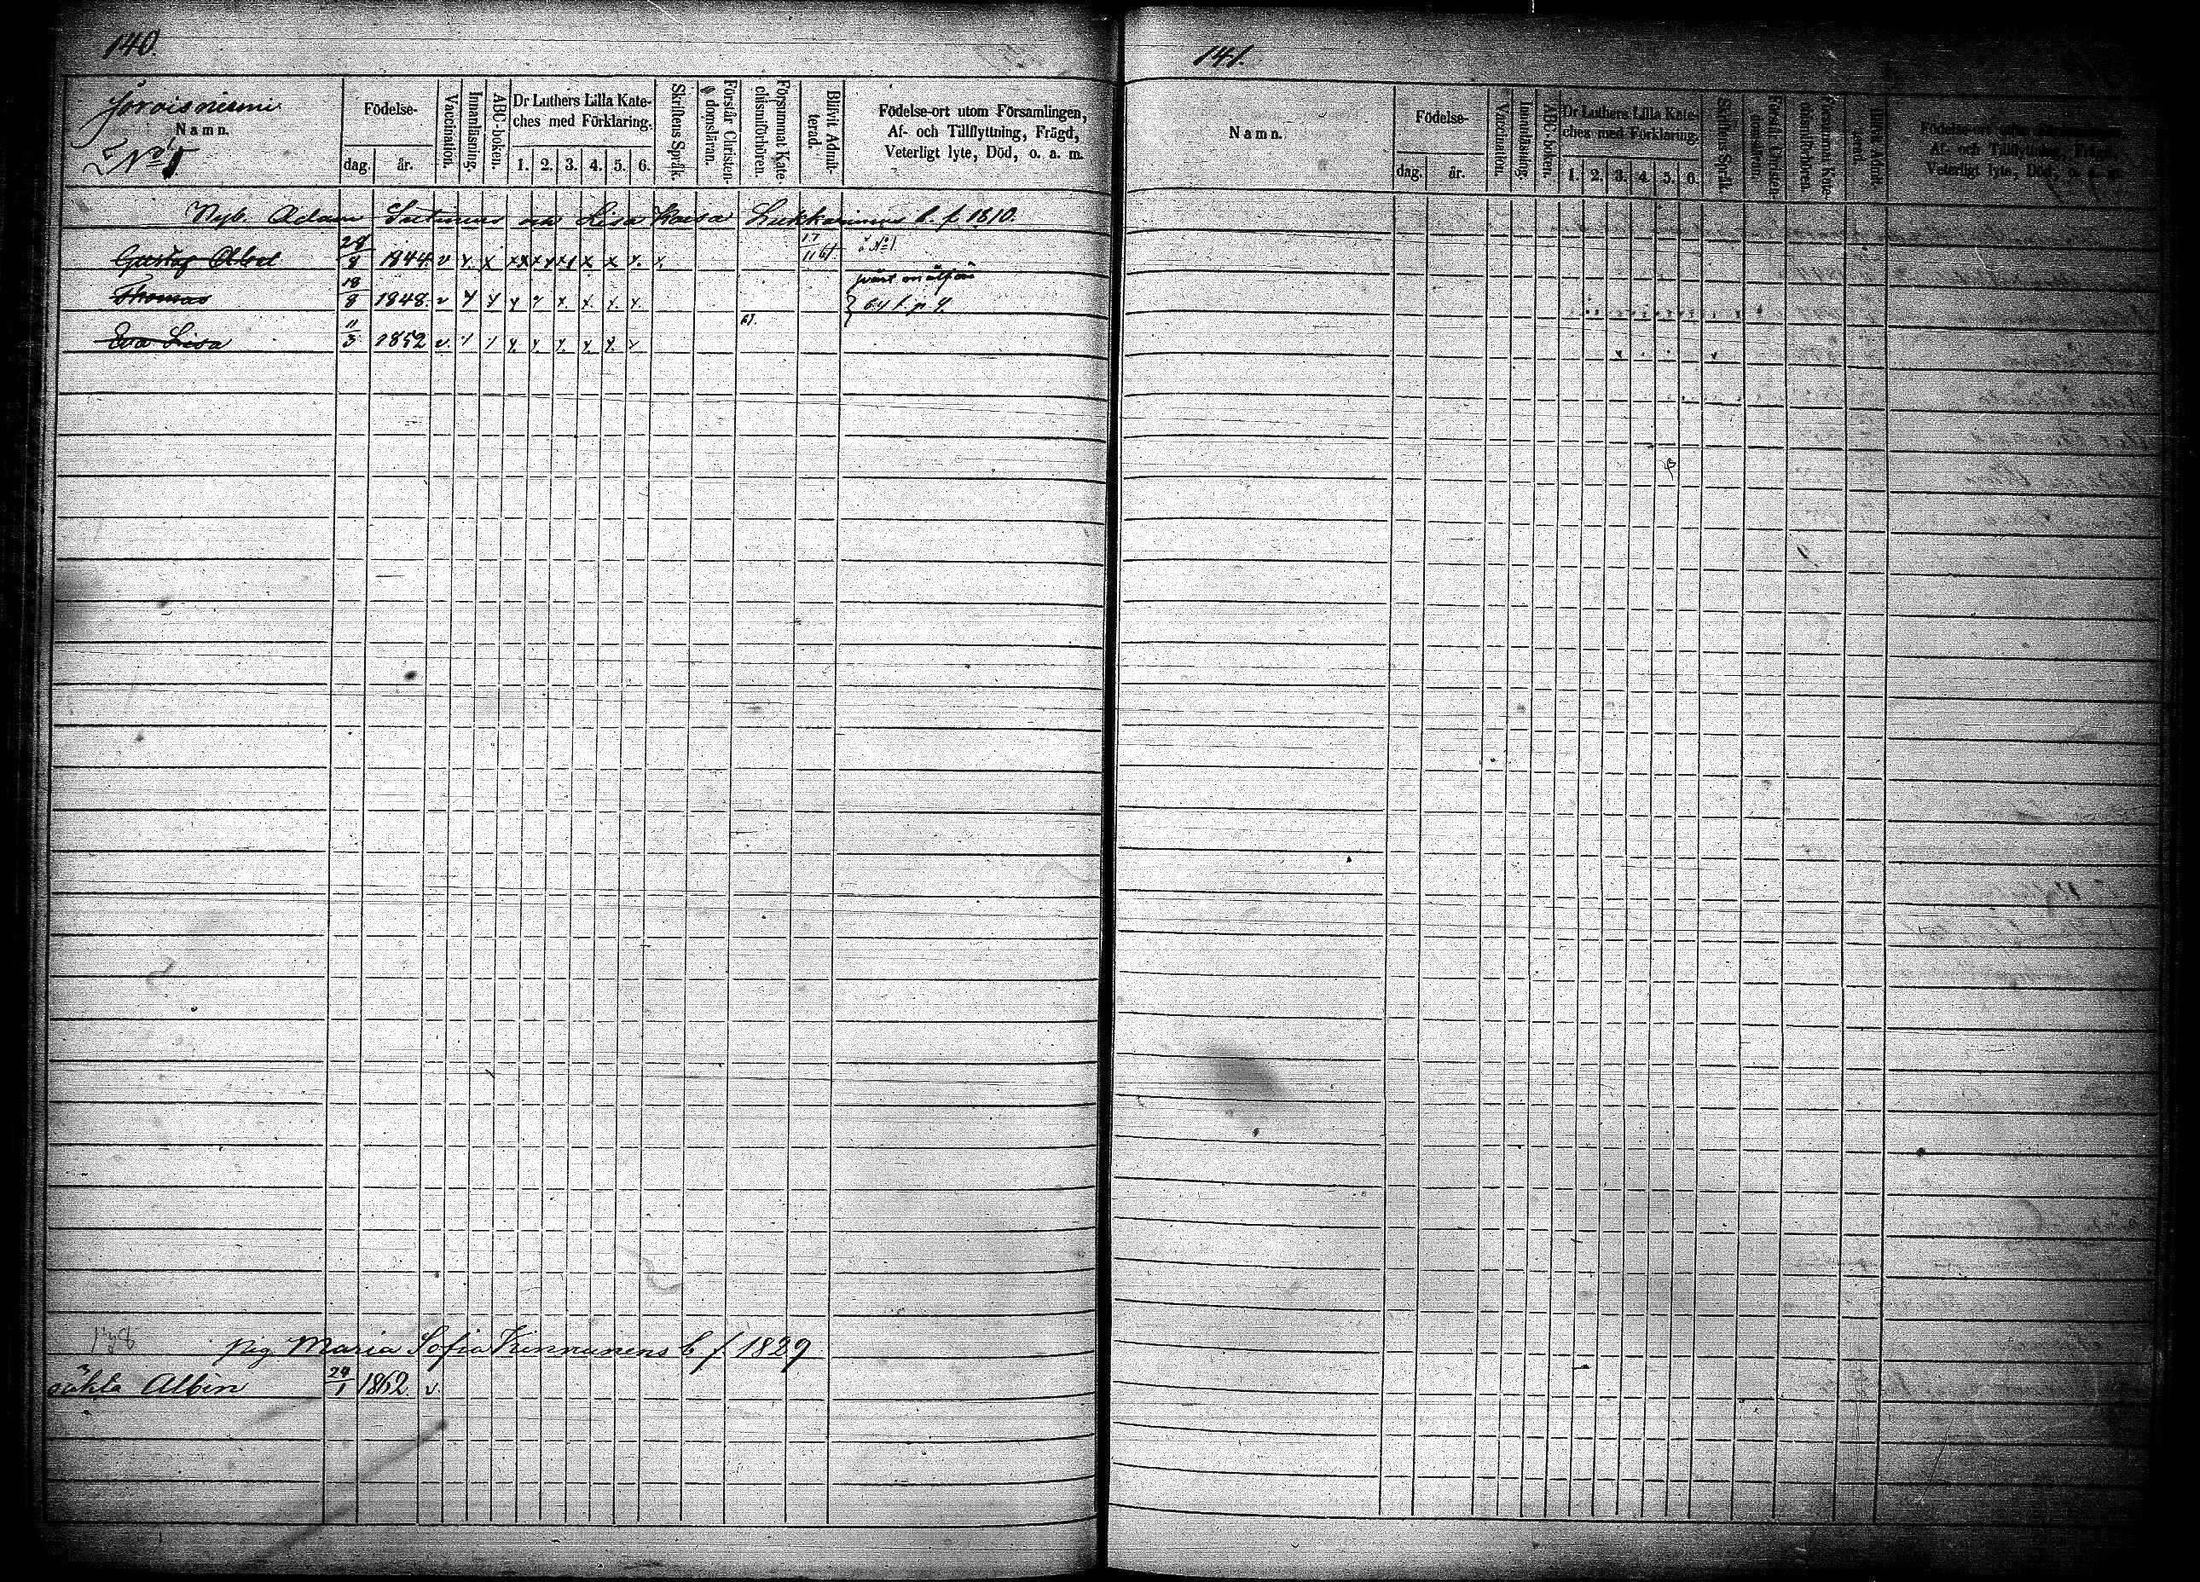 140.
Joroisniemi
Namn.
No 1
Födelse-
dag.
år.
Vaccination.
Innanläsning.
ABC-boken.
Dr Luthers Lilla Kate-
ches med Förklaring.
1. 2. 3. 4. 5. 6.
Skriftens Språk.
Förstår Christen-
domsläran.
Försummat Kate-
chismiförhören.
Blifvit Admit-
terad.
Födelse-ort utom Församlingen,
Af- och Tillflyttning, Frägd,
Veterligt lyte, Död, o. a. m.
Nyb. Adam och Lisa Kaisa Lukkarinens b. f. 1810.
Gustaf Abel 28/8 1844 v x x x x x x x x x 17/11 61 å No 1
Thomas 18/8 1848 v x x x x x x x x 64 f. p. 9.
Eva Lisa 11/3 1852 v x x x x x x x x
Pig. Maria Sofia Kinnunens b f 1829
oäkta Albin 24/1 1862. v.
141.
Namn.
Födelse-
dag.
år.
Vaccination.
Innanläsning.
ABC-boken.
Dr Luthers Lilla Kate-
ches med Förklaring.
1. 2. 3. 4. 5. 6.
Skriftens Språk.
Förstår Christen-
domsläran.
Försummat Kate-
chismiförhören.
Blifvit Admit-
terad.
Födelse-ort utom Församlingen,
Af- och Tillflyttning, Frägd,
Veterligt lyte, Död, o. a. m.